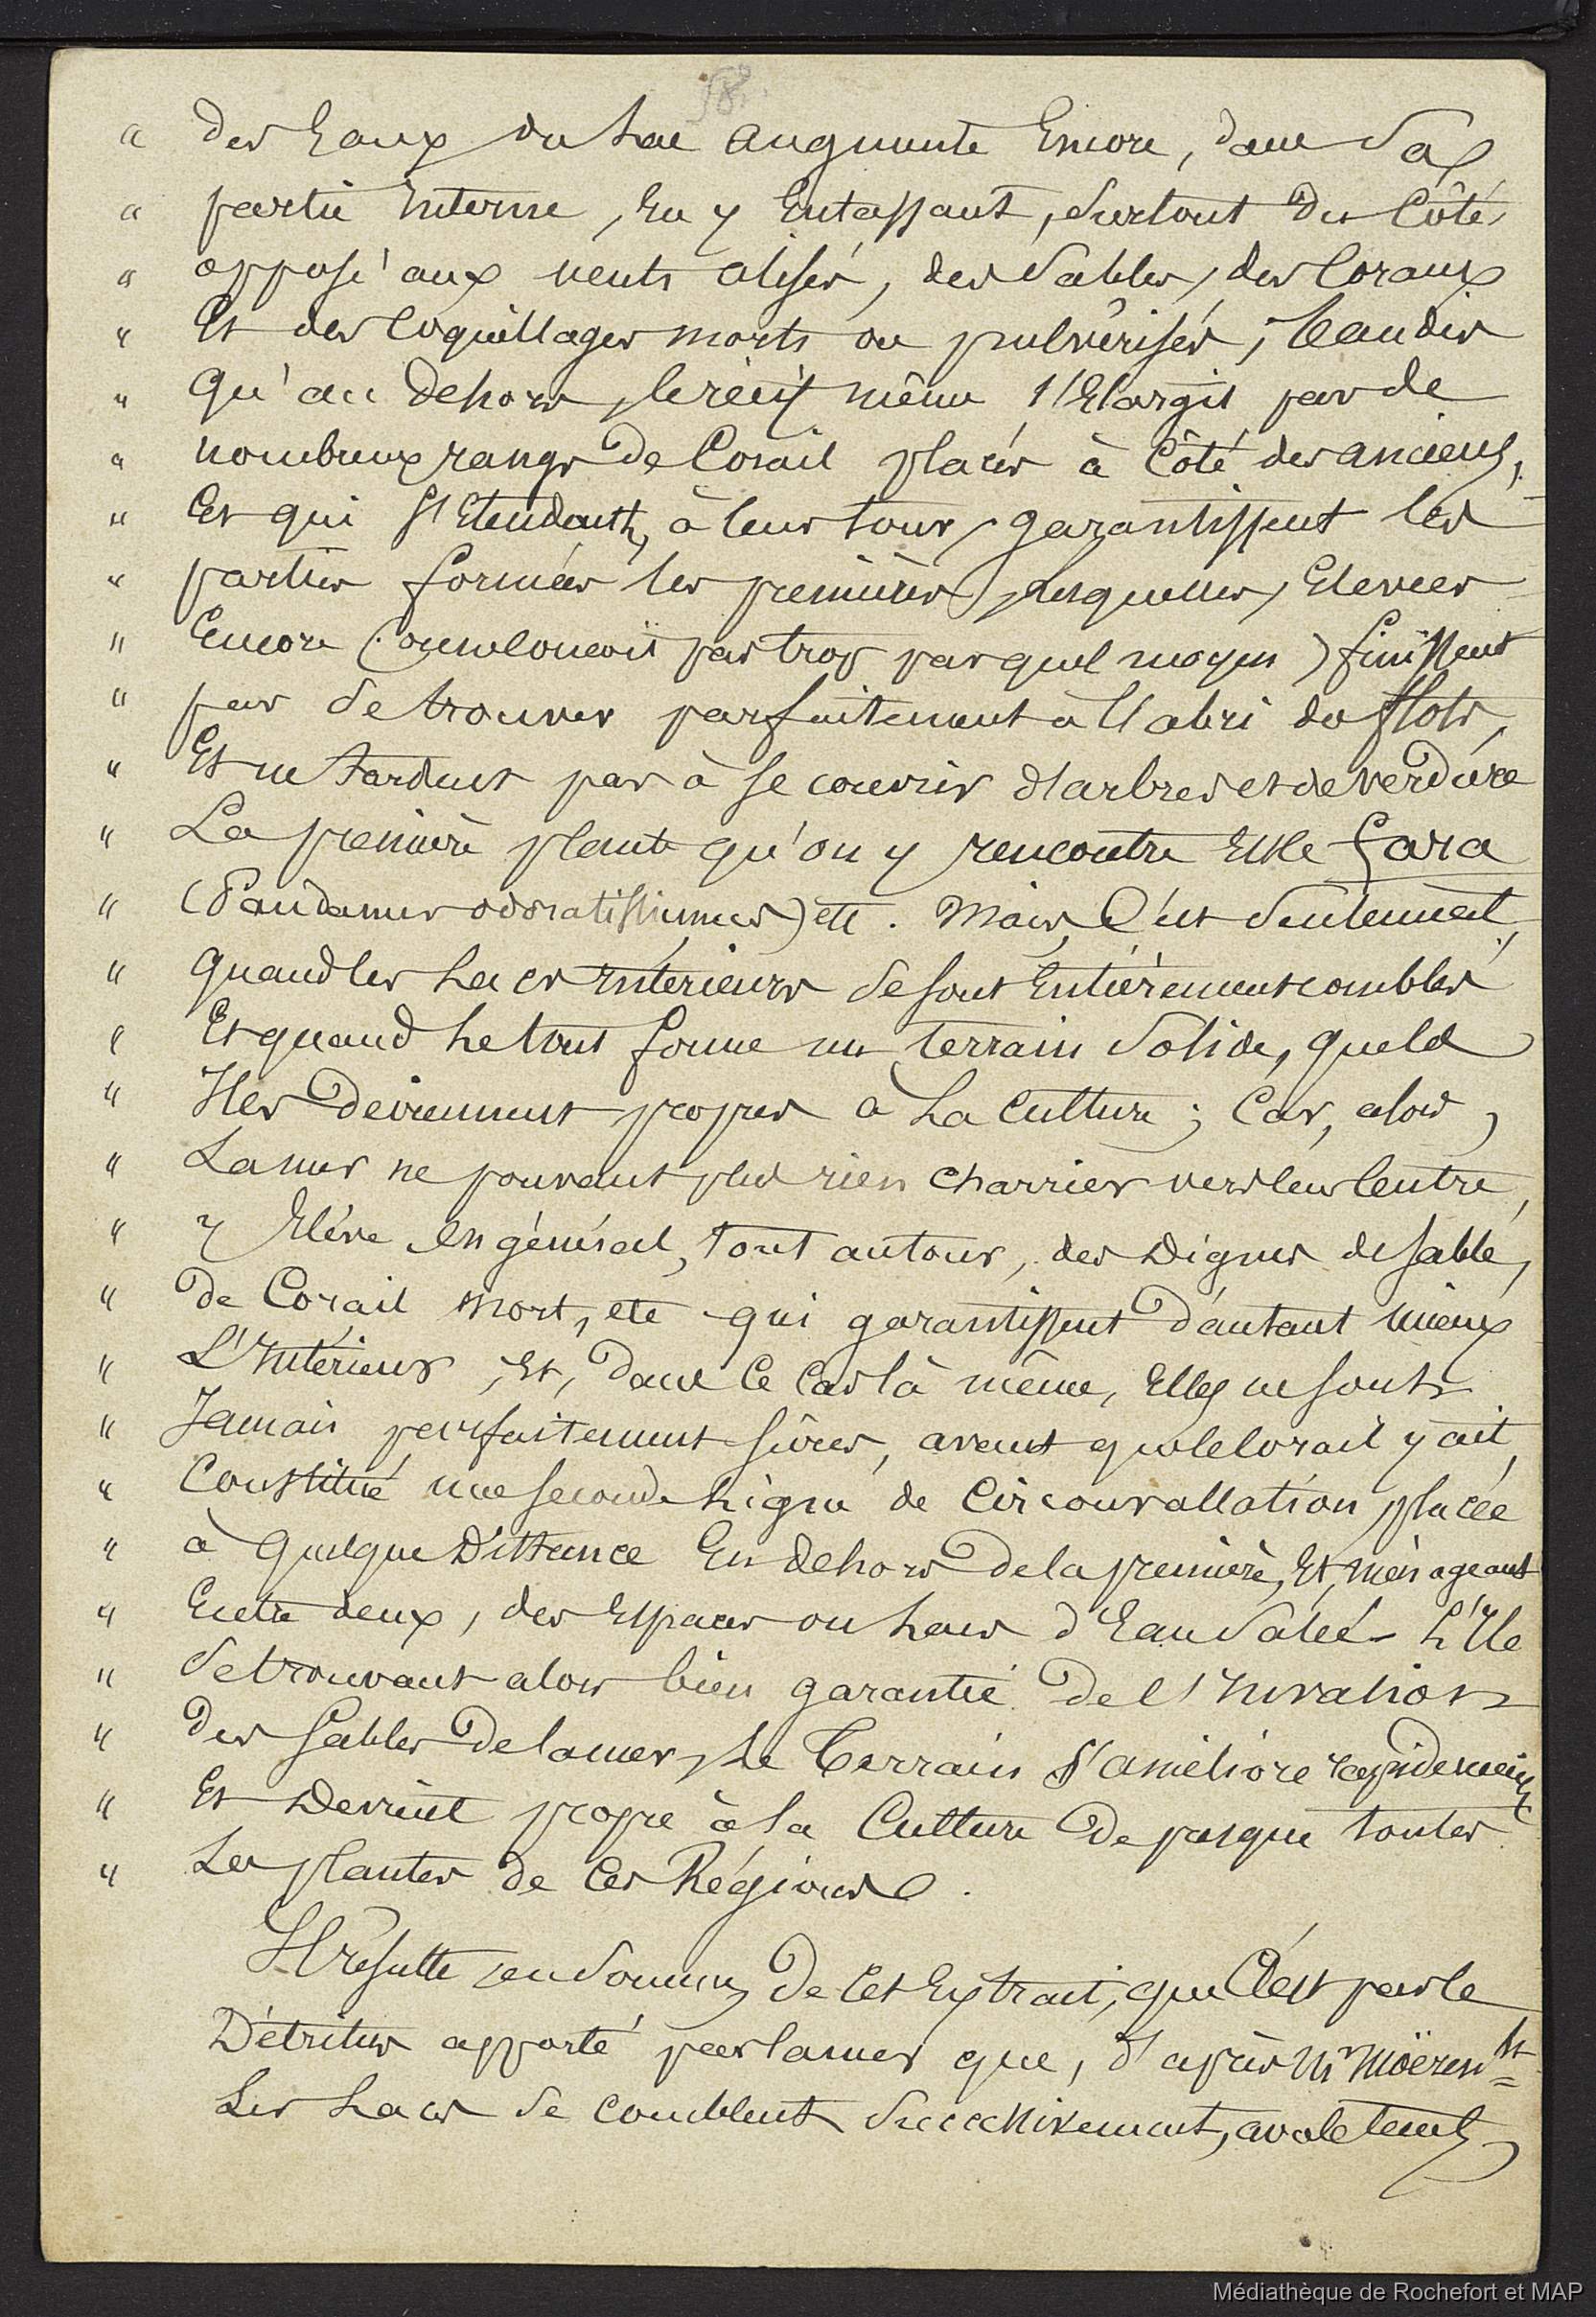 58.
" des Eaux du Lac augmente Encore, dans Sa
" partie interne, En y Entassant, Surtout du Côté
" opposé aux vents alisés, des Sables, des Coraux
" Et des Coquillages morts ou pulvérisés, Tandis
" Qu'au dehors, le récif même s'Elargit par de
" nombreux rangs de Corail placés à Côté des anciens,
" Et qui s'Etendant, à leur tour, garantissent les
" parties formées les premières, lesquelles, Elevées
" Encore ( par trop par quel moyen ) finissent
" par Se trouver parfaitement à l'abri des flots,
" Et ne tardent pas à se couvrir d'arbres et de verdure
" La première plante qu'on y rencontre Est le fara
" (Pandanus odoratissimus) etc. Mais, C'est Seulement,
" quand les Lacs Intérieurs se sont Entièrement comblés
" Et quand Le tout forme un terrain Solide, que les
" Iles deviennent propres à La Culture ; Car, alors,
" La mer ne pouvant plus rien charrier vers leur Centre,
" y Elève En général, tout autour, des Digues de sable,
" de Corail mort, etc qui garantissent d'autant mieux
" L'Intérieur, Et, Dans Ce Cas là même, Elles ne sont
" Jamais parfaitement sûres, avant que le Corail y ait,
" Constitué une seconde Ligne de Circonvallation, placée
" à quelque Distance En dehors de la première, Et, ménageant
" Entre deux, des Espaces ou Lacs d'Eau Salée - L'Ile
" Se trouvant alors bien garantie de l'Invasion
" des Sables de la mer, Le Terrain s'améliore rapidement
" Et Devient propre à la Culture de presque toutes
" Les plantes de Ces Régions.
Il résulte, en Somme, de Cet Extrait, que C'est par le
Détritus apporté par la mer que, d'après Mr Möeren ht=
Les Lacs Se comblent Successivement, avec le temps,
Médiathèque de Rochefort et MAP